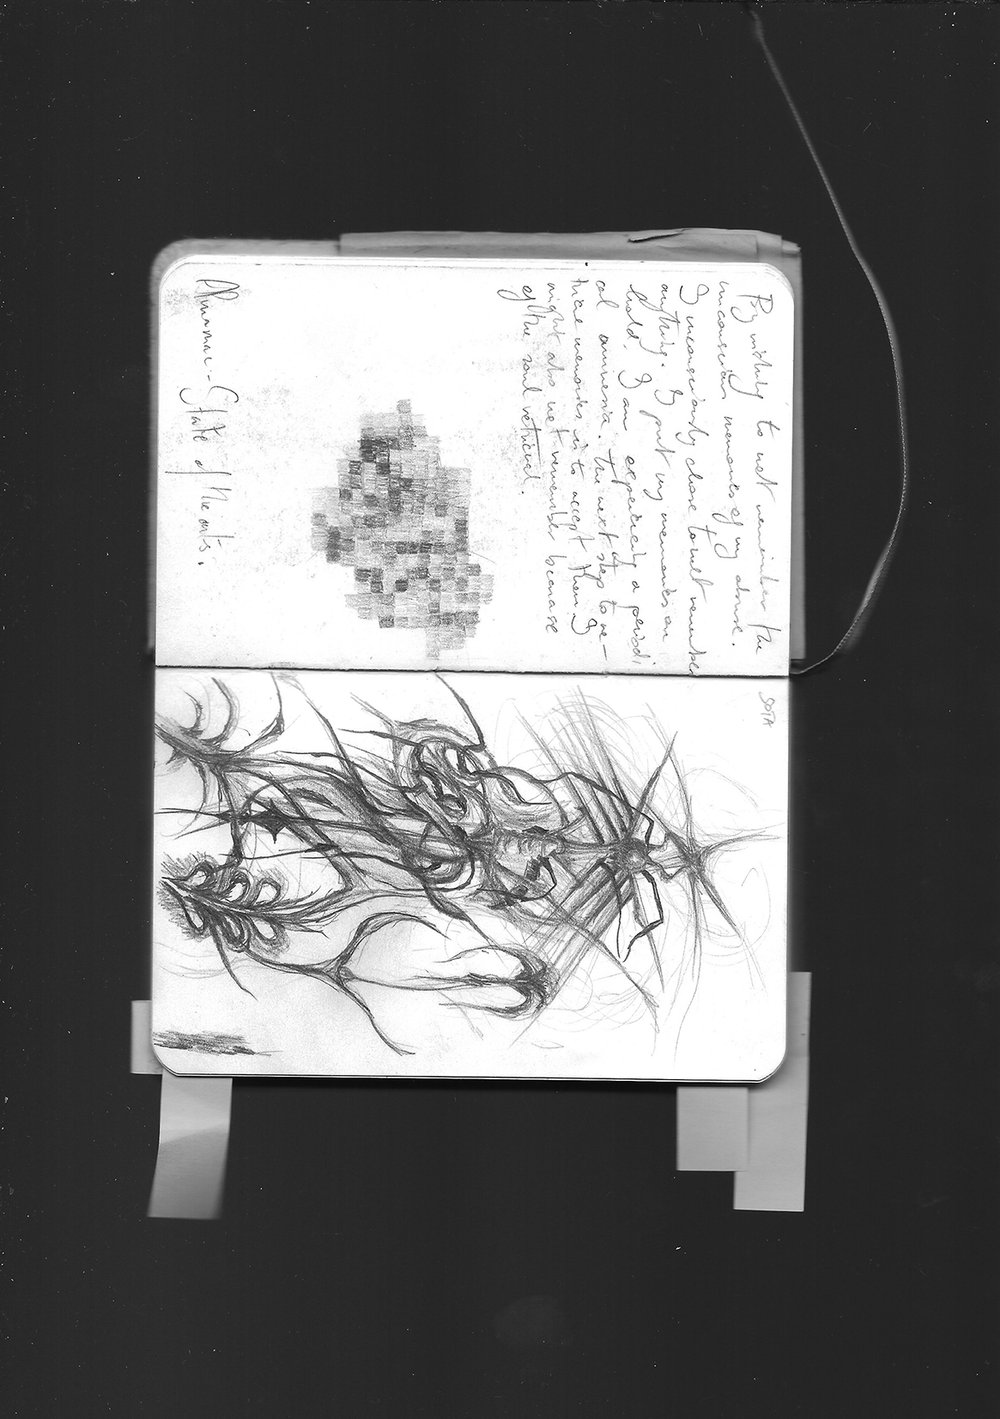 By wishing to not remember the
unconscious memories of my abuse.
I unconsciously chose to not remember
anything. I put my memories on
hold. I am experiencing a periodi
cal amnesia. The next step to re-
trieve memories is to accept them. I
might also not remember because
of the soul retrieval.
- State of the arts.
SOTA